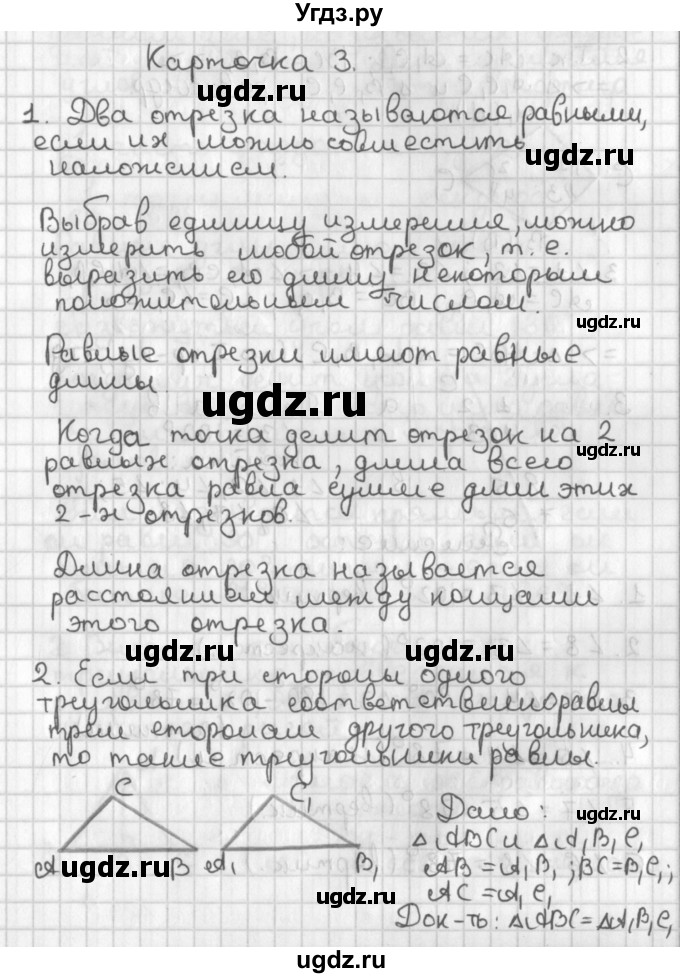 Угдз.ру
Карточка 3.
ugdz.ru
1. Два отрезка называются равными,
если их можно совместить
ugdz.ru
наложением.
Выбрав единицу измерения, можно
измерить любой отрезок, т. е.
выразить его длину некоторым
положительным числом.
ugdz.ru
Равные отрезки имеют равные
длины
ugdz.ru
Когда точка делит отрезок на 2
равных отрезка, длина всего
ugdz.ru
отрезка равна сумме длин этих
2-х отрезков.
Длина отрезка называется
расстоянием между концами
этого отрезка.
ugdz.ru
ugdz.ru
2. Если три стороны одного
треугольника соответственно равны
трем сторонам другого треугольника,
то такие треугольники равны.
ugdz.ru
C C₁
Дано:
ugdz.ru
△ABC и △A₁B₁C₁
A B A₁ B₁
ugdz.ru
ugdz.ru
AB = A₁B₁; BC=B₁C₁;
AC = A₁C₁
ugdz.ru
Док-ть: △ABC=△A₁B₁C₁
ugdz.ru
ugdz.ru